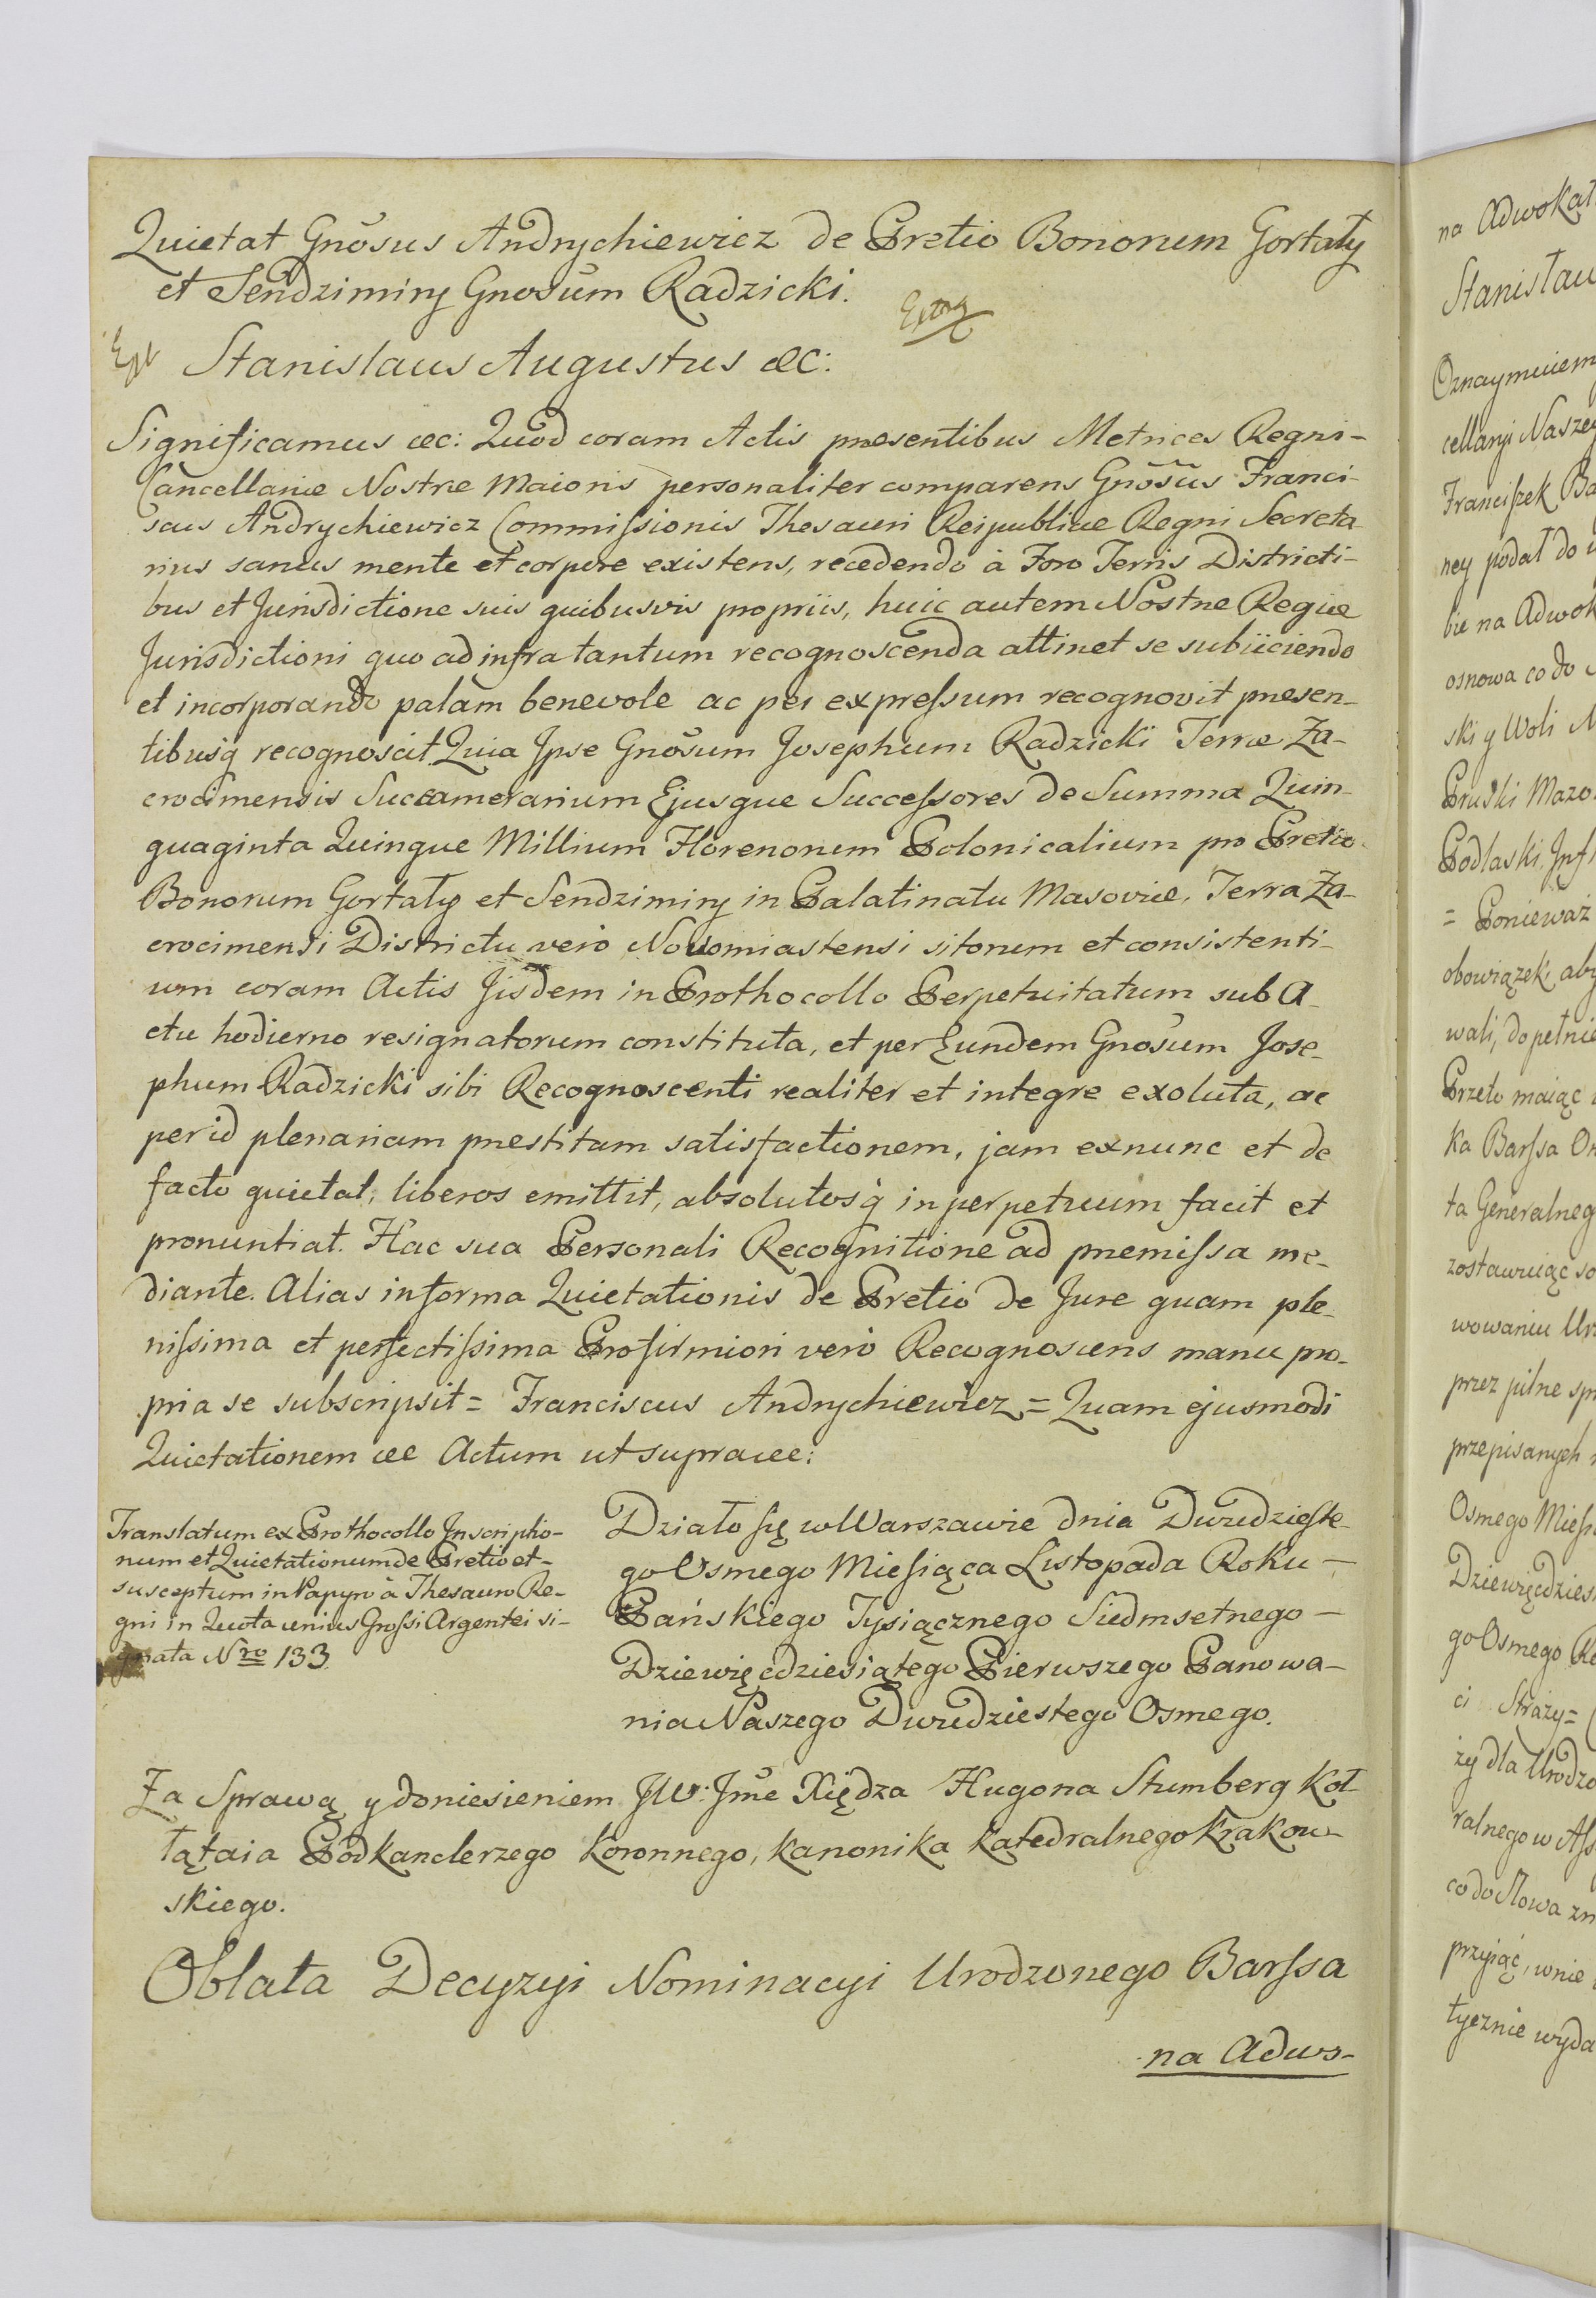 Quietat Gnõsus Andrychiewicz de Pretio Bonorum Gortaty
et Sendzimiry Gnosum Radzicki.
Stanislaus Augustus &c:
Significamus &c: Quod coram Actis præsentibus Metrices Regni-
Cancellariæ Nostræ Maioris personaliter comparens Gnõsus Franci-
scus Andrychiewicz Commissionis Thesauri Reipublicæ Regni Secreta-
rius sanus mente et corpore existens, recedendo à Foro Terris Districti-
bus et Jurisdictione suis quibusvis propriis, huic autem Nostræ Regiæ
Jurisdictioni quo ad infra tantum recognoscenda attinet se subiiciendo
et incorporando palam benevole ac per expressum recognovit præsen-
tibusq recognoscit Quia Jpse Gnõsum Josephum Radzicki Terræ Za-
crocimensis Succamerarium Ejusque Successores de Summa Quin-
quaginta Quinque Millium Florenorum Polonicalium pro Pretio
Bonorum Gortaty et Sendzimiry in Palatinatu Masoviæ, Terra Za-
crocimensi Districtu vero Novomiastensi sitorum et consistenti-
um coram Actis Jisdem in Prothocollo Perpetuitatum sub A-
ctu hodierno resignatorum constituta, et per Eundem Gnõsum Jose-
phum Radzicki sibi Recognoscenti realiter et integre exoluta, ac
per id plenariam præstitam satisfactionem, jam exnunc et de
facto quietat, liberos emittit, absolutosq in perpetuum facit et
pronuntiat. Hac sua Personali Recognitione ad præmissa me-
diante. Alias in forma Quietationis de Pretio de Jure quam ple-
nissima et perfectissima Pro firmiori vero Recognoscens manu pro-
pria se subscripsit = Franciscus Andrychiewicz = Quam ejusmodi
Quietationem &c Actum ut supra &c:
Translatum ex Prothocollo Inscriptio-
num et Quietationum de Pretio et-
susceptum in Papyro à Thesauro Re-
gni in Quota unius Grossi Argentei si-
gnata Nro 133.
Działo się w Warszawie dnia Dwudzieste-
go Osmego Miesiąca Listopada Roku -
Pańskiego Tysiącznego Siedmsetnego -
Dziewięćdziesiątego Pierwszego Panowa-
nia Naszego Dwudziestego Osmego.
Za Sprawą y doniesieniem JW: Jmć Xiędza Hugona Stumberg Koł-
łątaia Podkanclerzego Koronnego, Kanonika Katedralnego Krakow-
skiego.
Oblata Decyzyi Nominacyi Urodzonego Barssa
na Adwo-
na Adwokat
Stanisław
Oznaymuiem
cellaryi Naszey
Franciszek Ba
ney podał do
bie na Adwok
osnowa co do
ski y Woli
Pruski Mazo
Podlaski. Jnf
= Ponieważ
obowiązek, aby
wali, dopełnie
Przeto maiąc
ka Barssa
ta Generalneg
zostawuiąc so
wowaniu
przez pilne spr
przepisanych
Osmego Miesi
Dziewięćdzies
go Osmego
ci Straży =
ży dla Urodzo
ralnego w
co do Słowa zn
przyiąć, w nie
tycznie wyda